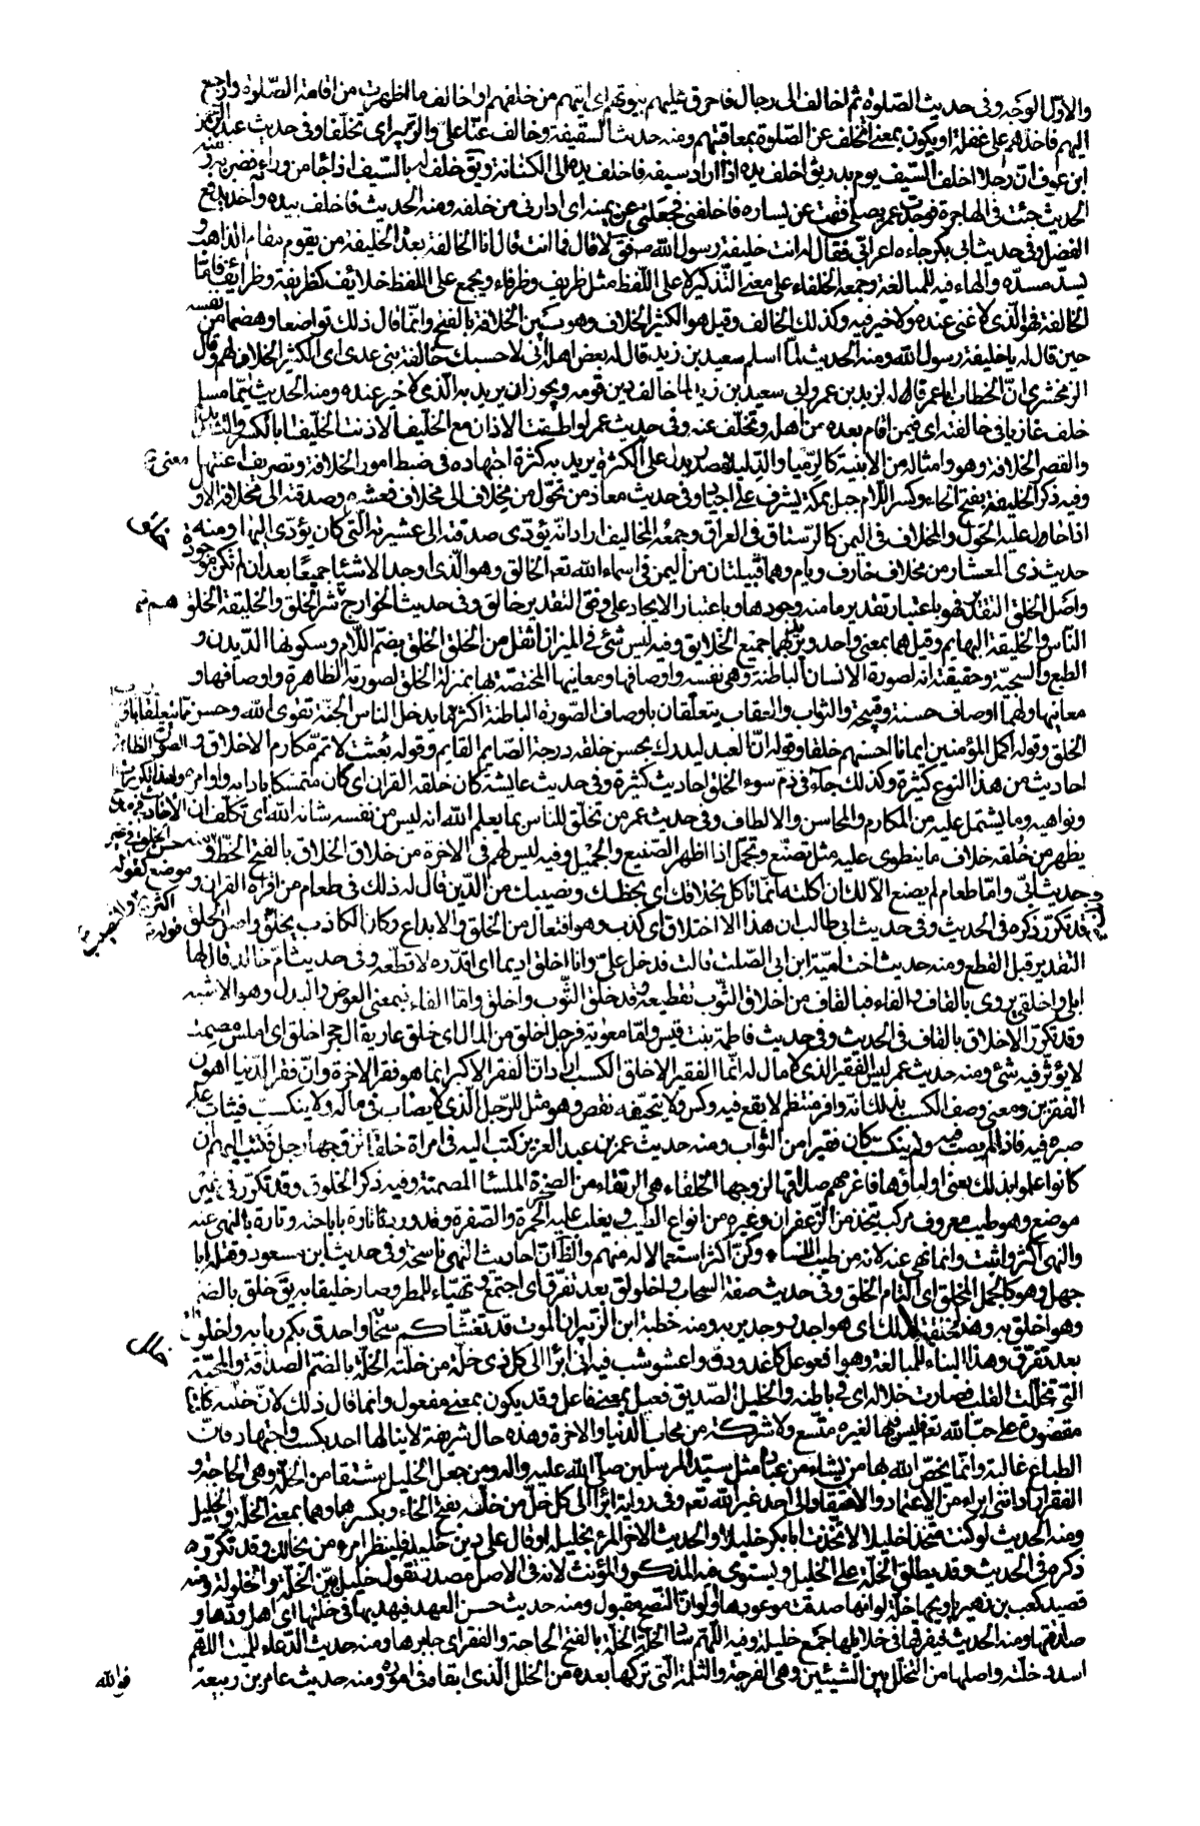 والاوّل الوجه وفى حديث الصّلوة ثم اخالف الى رجال فاحرق عليهم بيوتهم اى اتيهم من خلفهم او اخالف ما اظهرت من اقامة الصّلوة وارجع
اليهم فاخذهم على غفلة او يكون بمعنى اتخلف عن الصّلوة بمعاقبتهم ومنه حديث السقيفة وخالف عنّا علىّ والزبير اى تخلّفا وفى حديث عبد الرحمن
ابن عوف ان رجلا اخلف السّيف يوم بدر يق اخلف يده اذا اراد سيفه فاخلف يده الى الكنانة ويق خلف له بالسّيف اذا جا من ورائه فضربه ومنه
الحديث جئت فى الهاجرة فوجدت عمر يصلى فقمت عن يساره فاخلفنى فجعلنى عن يمينه اى ادارنى من خلفه ومنه الحديث فاخلف بيده واخذ يدفع
الفضل وفى حديث ابى بكر جاءه اعرابى فقال له انت خليفة رسول الله ص فق لا قال فما انت قال انا الخالفة بعده الخليفة من يقوم مقام الذاهب و
يسدّ مسدّه والهاء فيه للمبالغة وجمعه الخلفاء على معنى التذكير لا على اللّفظ مثل ظريف وظرفاء ويجمع على اللفظ خلائف كظريفة وظرائف فامّا
الخالفة فهو الّذى لا غنى عنده ولا خير فيه وكذلك الخالف وقيل هو الكثير الخلاف وهو بيّن الخلافة بالفتح وانّما قال ذلك تواضعا وهضما من نفسه
حين قال له يا خليفة رسول الله ومنه الحديث لمّا اسلم سعيد بن زيد قال له بعض اهله انى لاحسبك خالفة بنى عدى اى الكثير الخلاف لهم وقال
الزمخشرى انّ الخطاب ابا عمر قاله لزيد بن عمرو ابى سعيد بن زيد لما خالف دين قومه ويجوز ان يريد به الّذى لا خير عنده ومنه الحديث ايّما مسلم
خلف غازيا فى خالفته اى فيمن اقام بعده من اهله وتخلّف عنه وفى حديث عمر لو اطقت الاذان مع الخلّيفا لاذنت الخلّيفا بالكسر والتشديد
والقصر الخلافة وهو وامثاله من الابنية كالرّميا والدّليلا مصدر يدل على الكثرة يريد به كثرة اجتهاده فى ضبط امور الخلافة وتصريف اعنتها
وفيه ذكر الخليفة بفتح الخاء وكسر اللام جبل بمكة يشرف على اجياد وفى حديث معاذ من تحوّل من مخلاف الى مخلاف فعشره وصدقته الى مخلافه الاول
اذا حال عليه الحول والمخلاف فى اليمن كالرّستاق فى العراق وجمعه المخاليف اراد انّه يؤدّى صدقته الى عشيرته الّتى كان يؤدّى اليها ومنه
حديث ذى المعشار من مخلاف خارف ويام وهما قبيلتان من اليمن فى اسماء الله تعم الخالق وهو الّذى اوجد الاشيا جميعًا بعد ان لم تكن موجودة
واصل الخلق التقدير فهو باعتبار تقدير ما منه وجودها وباعتبار الايجاد على وفق التقدير خالق وفى حديث الخوارج هم شر الخلق والخليقة الخلق
النّاس والخليقة البهايم وقيل هما بمعنى واحد ويريد بهما جميع الخلايق وفيه ليس شئ فى الميزان اثقل من الخلق الخلق بضمّ اللّام وسكونها الدّين و
الطبع والسجيّة وحقيقته انه لصورة الانسان الباطنة وهى نفسه واوصافها ومعانيها المختصة بها بمنزلة الخلق لصورته الظاهرة واوصافها و
معانيها ولهما اوصاف حسنة وقبيحة والثواب والعقاب يتعلّقان باوصاف الصّورة الباطنة اكثر ما يدخل الناس الجنّة تقوى الله وحسن
الخلق وقوله اكمل المؤمنين ايمانا احسنهم خلقا وقوله انّ العبد ليدرك بحسن خلقه درجة الصّايم القايم وقوله بُعثت لاتمّم مكارم الاخلاق و
احاديث من هذا النوع كثيرة وكذلك جاء فى ذم سوء الخلق احاديث كثيرة وفى حديث عايشة كان خلقه القران اى كان متمسكا بادابه واوامره
ونواهيه وما يشتمل عليه من المكارم والمحاسن والالطاف وفى حديث عمر من تخلّق للناس بما يعلم الله انه ليس من نفسه شانه الله اى تكلّف ان
يظهر من خلقه خلاف ما ينطوى عليه مثل تصنّع وتجمّل اذا اظهر الصّنيع والجميل وفيه ليس لهم فى الاخرة من خلاق الخلاق بالفتح الحظ و
حديث ابىّ وامّا طعام لم يصنع الّا لك ان اكلته انّما تاكل بخلاقك اى بحظك ونصيبك من الدّين قال له ذلك فى طعام من اقراه القران و
قد تكرّر ذكره فى الحديث وفى حديث ابى طالب ان هذا الا اختلاق اى كذب وهو افتعال من الخلق والابداع وكان الكاذب يخلق واصل الخلق
التقدير قبل القطع ومنه حديث اخت اميّة ابن ابى الصّلت قالت فدخل علىّ وانا اخلق اديما اى اقدّره لاقطّعه وفى حديث امّ خالد قال لها
ابلى واخلقى يروى بالقاف والفاء فبالقاف من اخلاق الثّوب تقطيعه وقد خلق الثّوب واخلق وامّا الفاء فبمعنى العوض والبدل وهو الاشبه
وقد تكرّر الاخلاق بالقاف فى الحديث وفى حديث فاطمة بنت قيس وامّا معوية فرجل اخلق من المال اى خلق عار يقال حجر اخلق اى املس مصمت
لا يؤثّر فيه شئ ومنه حديث عمر ليس الفقير الذى لا مال له انّما الفقير الاخلق الكسب اراد انّ الفقر الاكبر انما هو فقر الاخرة وانّ فقر الدّنيا اهون
الفقرين ومعنى وصف الكسب بذلك انّه وافر منتظم لا يقع فيه وكس ولا يتحيّفه نقص وهو مثل للرّجل الّذى لا يصاب فى ماله ولا ينكب فيثاب على
صبره فيه فاذا لم يصب فيه ولم ينكب كان فقيرا من الثواب ومنه حديث عمر بن عبد العزيز كتب اليه فى امراة خلقا تزوجها رجل فكتب اليه ان
كانوا علموا بذلك يعنى اولياؤها فاغرمهم صداقها لزوجها الخلقاء هى الرتقاء من الصخرة الملسا المصمتة وفيه ذكر الخلوق وقد تكرّر فى غير
موضع وهو طيب معروف مركب يتخذ من الزّعفران وغيره من انواع الطيب ويغلب عليه الحمرة والصّفرة وقد ورد تارة باباحته وتارة بالنّهى عنه
والنهى اكثر واثبت وانما نهى عنه لانه من طيب النساء وكنّ اكثر استعمالا له منهم والظّ انّ احاديث النهى ناسخة وفى حديث ابن مسعود وقتله ابا
جهل وهو كالجمل المخلّق اى التام الخلق وفى حديث صفة السحاب واخلولق بعد تفرّق اى اجتمع وتهيّاء للمطر وصار خليقا به يق خلق بالضم
وهو اخلق به وهذا مخلقة لذلك اى هو اجدر وجدير به ومنه خطبة ابن الزّبير ان الموت قد تغشّاكم سحابه واحدق بكم ربابه واخلولق
بعد تفرّق وهذا البناء للمبالغة وهو افعوعل كاغدودق واعشوشب فيه انى ابرأ الى كل ذى خلّة من خلّته الخلّة بالضّم الصداقة والمحبّة
التى تخلّلت القلب فصارت خلاله اى فى باطنه والخليل الصّديق فعيل بمعنى فاعل وقد يكون بمعنى مفعول وانما قال ذلك لانّ خلّته كانت
مقصورة على حبّ الله تعم فليس فيها لغيره متّسع ولا شركة من محاب الدّنيا والاخرة وهذه حال شريفة لا ينالها احد بكسب واجتهاد فانّ
الطباع غالبة وانّما يخصّ الله بها من يشاء من عباده مثل سيّد المرسلين صلّى الله عليه واله ومن جعل الخليل مشتقا من الخلّة وهى الحاجة و
الفقر اراد انى ابراء من الاعتماد والافتقار الى احد غير الله تعم وفى رواية ابرأ الى كل خلّ من خلّته بفتح الخاء وبكسرها وهما بمعنى الخلّة والخليل
ومنه الحديث لو كنت متّخذا خليلا لاتّخذت ابا بكر خليلا والحديث الاخر المرء بخليله او قال على دين خليله فلينظر امرء من يخالل وقد تكرّر
ذكره فى الحديث وقد يطلق الخلّة على الخليل ويستوى فيه المذكر والمؤنث لانه فى الاصل مصدر تقول خليل بيّن الخلّة والخلولة ومنه
قصيد كعب بن زهير يا ويحها خلّة لو انها صدقت موعودها او لو انّ النّصح مقبول ومنه حديث حسن العهد فيهديها فى خلّتها اى اهل ودّها و
صداقتها ومنه الحديث فيفرقها فى خلائلها جمع خليلة وفيه اللّهم ساد الخلّة الخلّة بالفتح الحاجة والفقر اى جابرها ومنه حديث الدّعاء للميت اللّهم
اسدد خلّته واصلها من التخلّل بين الشيئين وهى الفرجة والثلمة الّتى تركها بعده من الخلل الّذى ابقاه فى اموره ومنه حديث عامر بن ربيعة
خلق
خلل
فوالله